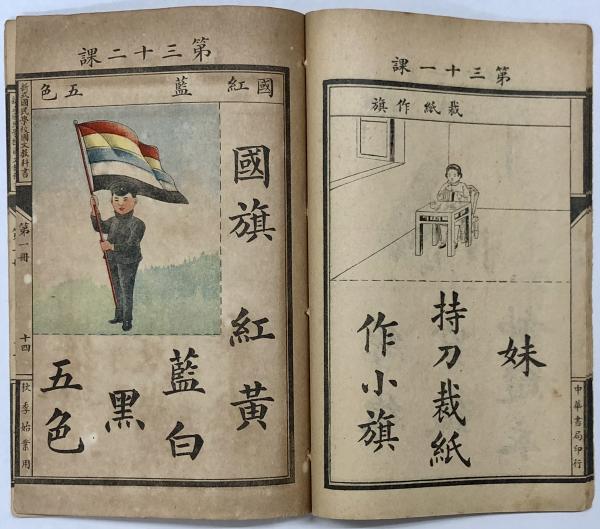 第三十一課
裁紙作旗
妹
持刀裁紙
作小旗
中華書局印行
第三十二課
國紅藍五色
國旗 紅黃
藍白
黑
五色
新式國民學校國文教科書
第一冊
十四
秋季始業用